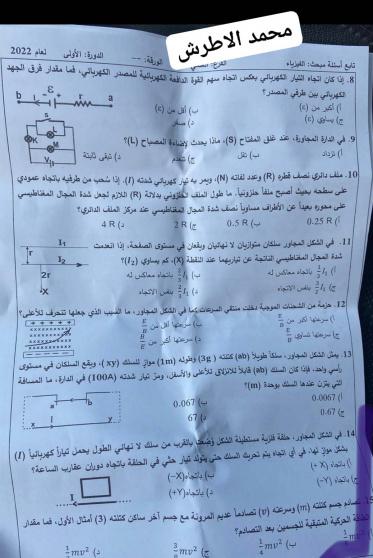 محمد الاطرش
تابع أسئلة مبحث: الفيزياء
الفرع: العلمي
الورقة: ---
الدورة: الأولى
لعام 2022
8. إذا كان اتجاه التيار الكهربائي بعكس اتجاه سهم القوة الدافعة الكهربائية للمصدر الكهربائي، فما مقدار فرق الجهد
الكهربائي بين طرفي المصدر؟
أ) أكبر من (ε)
ب) أقل من (ε)
ج) يساوي (ε)
د) صفر
b ε r a
9. في الدارة المجاورة، عند غلق المفتاح (S)، ماذا يحدث لإضاءة المصباح (L)؟
أ) تزداد
ب) تقل
ج) تنعدم
د) تبقى ثابتة
S L K M V
10. ملف دائري نصف قطره (R) وعدد لفاته (N)، ويمر به تيار كهربائي شدته (I). إذا سُحب من طرفيه باتجاه عمودي
على سطحه بحيث أصبح ملفاً حلزونياً، ما طول الملف الحلزوني بدلالة (R) اللازم لجعل شدة المجال المغناطيسي
على محوره بعيداً عن الأطراف مساوياً نصف شدة المجال المغناطيسي عند مركز الملف الدائري؟
أ) 0.25 R
ب) 0.5 R
ج) 2 R
د) 4 R
11. في الشكل المجاور سلكان متوازيان لا نهائيان ويقعان في مستوى الصفحة، إذا انعدمت
شدة المجال المغناطيسي الناتجة عن تياريهما عند النقطة (X)، كم يساوي (I₂)؟
باتجاه معاكس له
باتجاه معاكس له
بنفس الاتجاه
بنفس الاتجاه
I₁
r
I₂
2r
X
12. حزمة من الشحنات الموجبة دخلت منتقي السرعات كما في الشكل المجاور، ما السبب الذي جعلها تنحرف للأعلى؟
أ) سرعتها أكبر من
ب) سرعتها أقل من
ج) سرعتها تساوي
د) سرعتها أكبر من
13. يمثل الشكل المجاور، سلكاً طويلاً (ab) كتلته (3g) وطوله (1m) موازٍ للسلك (xy)، ويقع السلكان في مستوى
رأسي واحد، فإذا كان السلك (ab) قابلاً للانزلاق للأعلى والأسفل، ومرّ تيار شدته (100A) في الدارة، ما المسافة
التي يتزن عندها السلك بوحدة (m)؟
أ) 0.0067
ب) 0.067
ج) 0.67
د) 67
a b
x I y
14. في الشكل المجاور، حلقة فلزية مستطيلة الشكل وُضعت بالقرب من سلك لا نهائي الطول يحمل تياراً كهربائياً (I)
بشكل موازٍ لها، في أي اتجاه يتم تحريك السلك حتى يتولد تيار حثي في الحلقة باتجاه دوران عقارب الساعة؟
أ) باتجاه (+X)
ب) باتجاه (−X)
ج) باتجاه
د) باتجاه (+Y)
I
15. تصادم جسم كتلته (m) وسرعته (v) تصادماً عديم المرونة مع جسم آخر ساكن كتلته (3) أمثال الأول، فما مقدار
الطاقة الحركية المتبقية للجسمين بعد التصادم؟